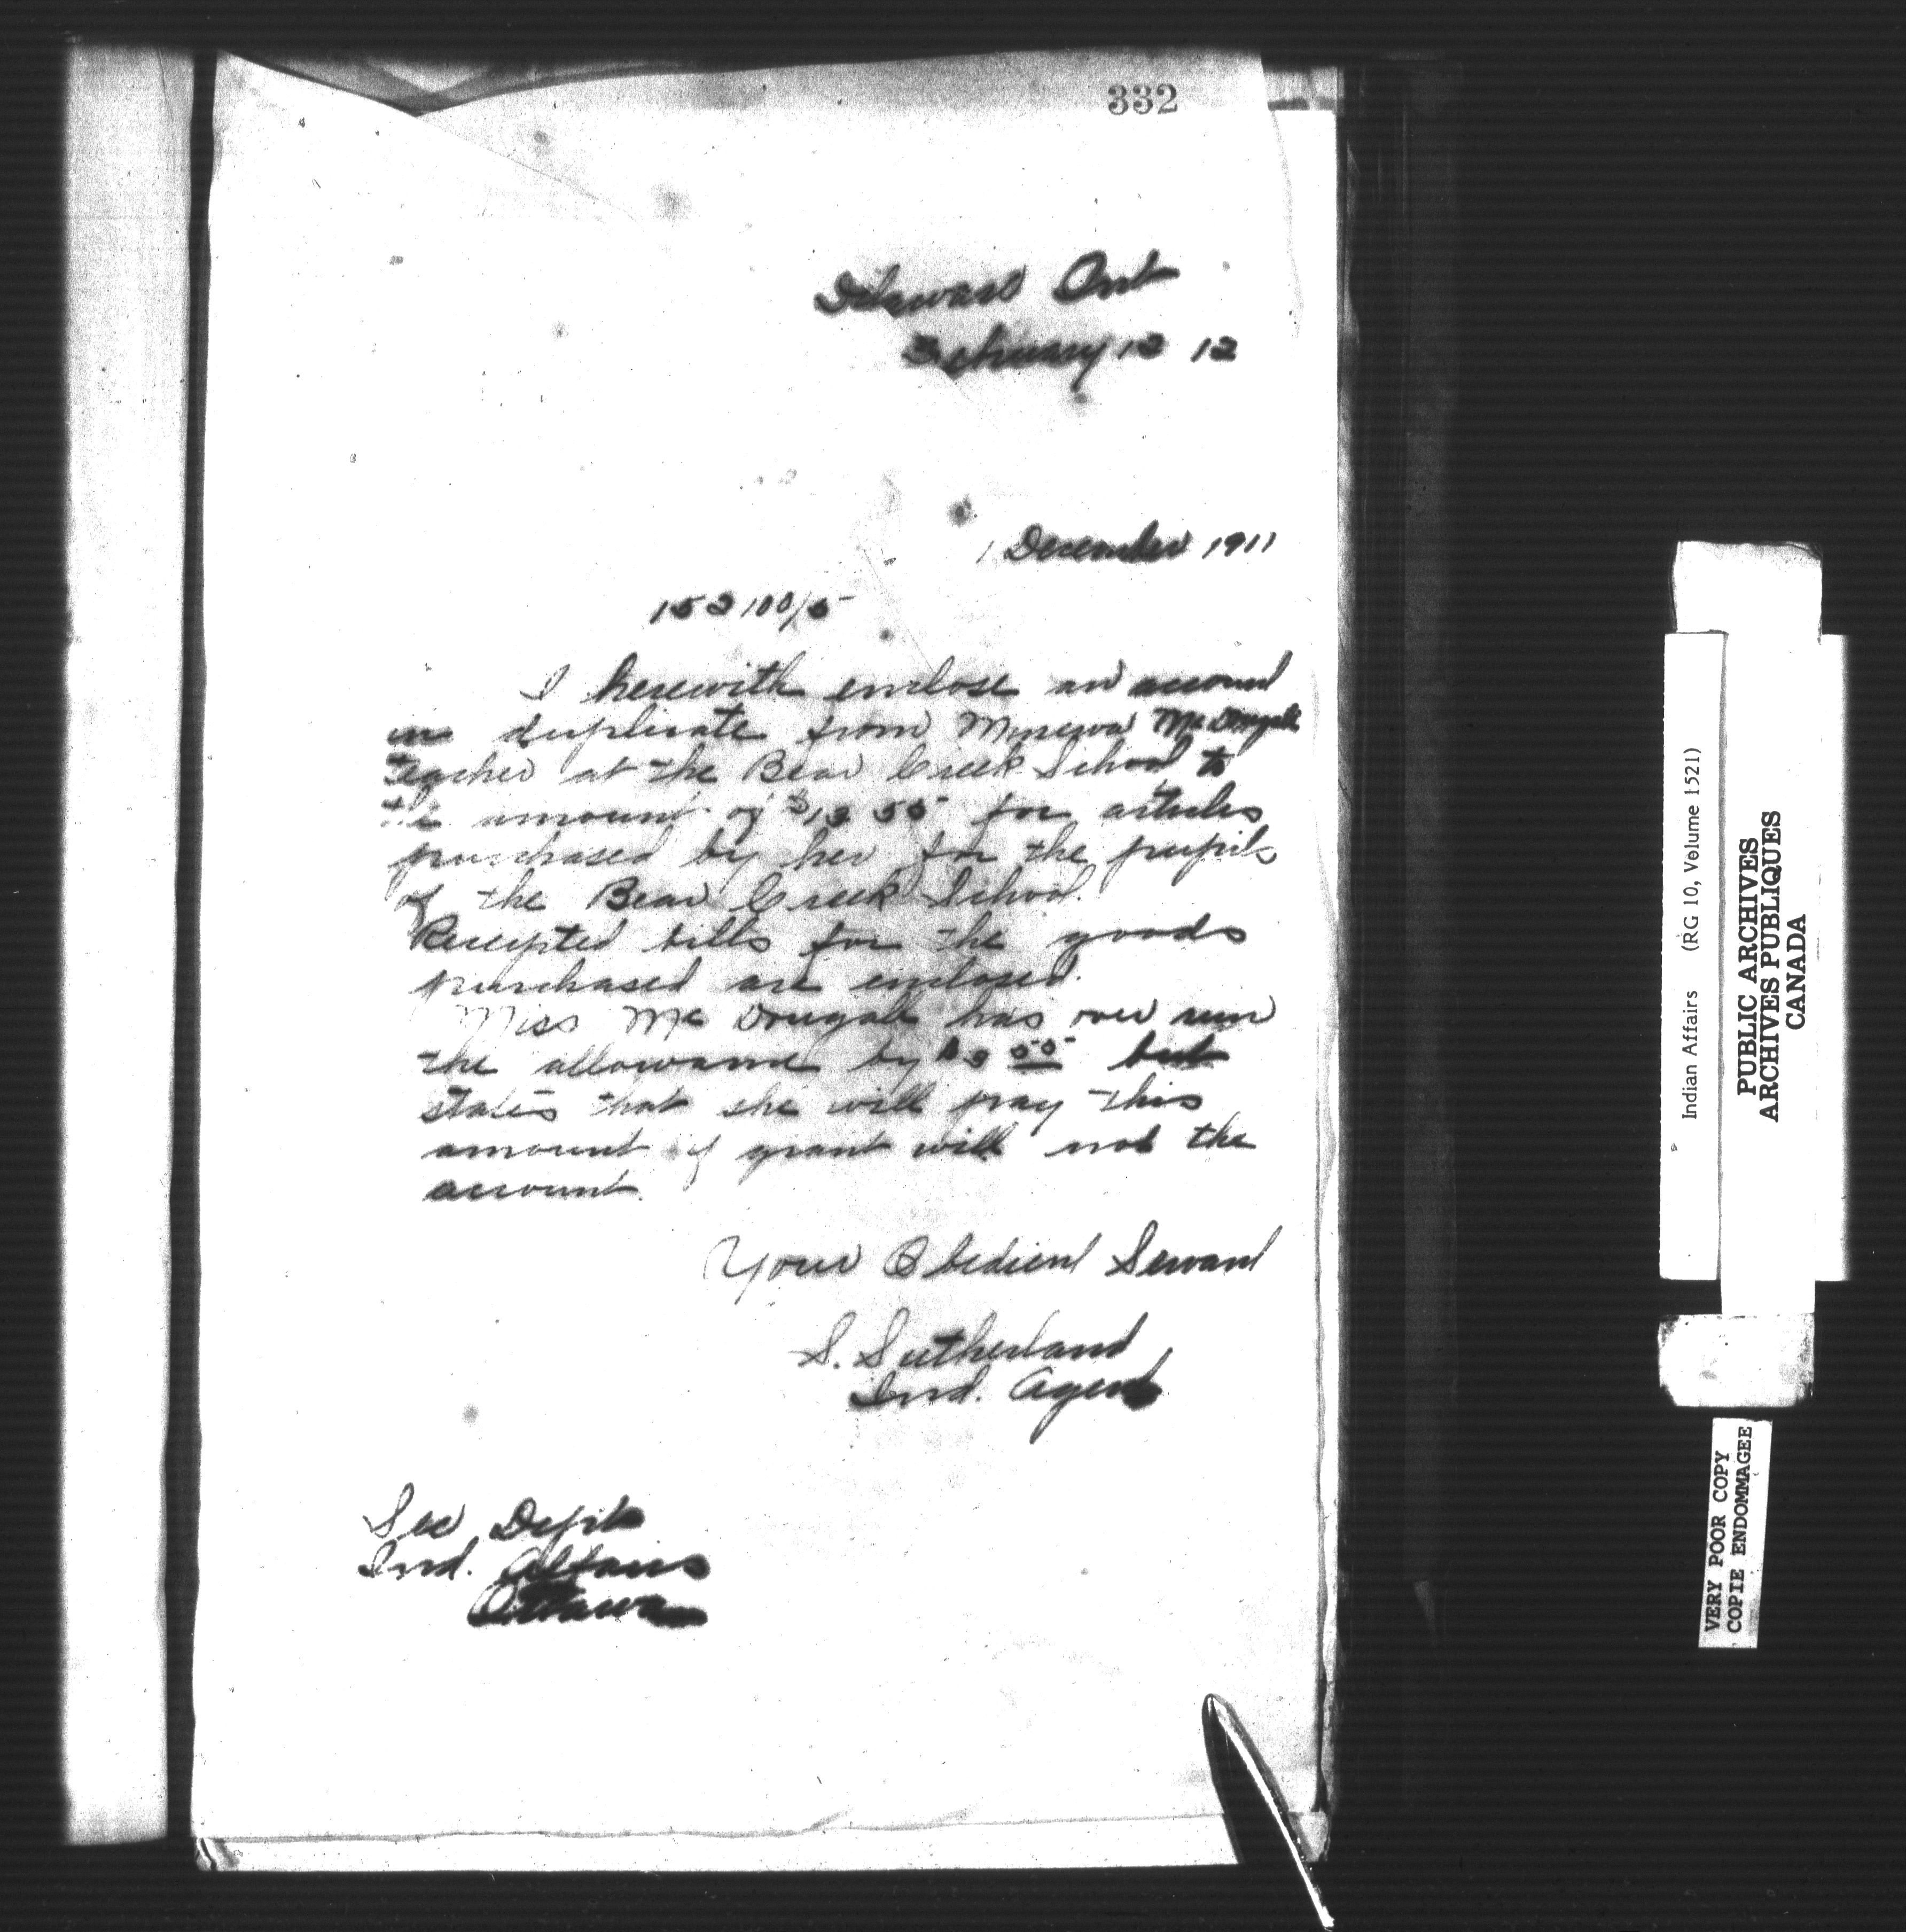 332
Delaware Ont
February 12 12
1 December 1911
152100/5
I herewith enclose an account
in duplicate from Minerva McDougall
teacher at the Bear Creek School to
the amount of $13 55 for articles
purchased by her for the pupils
of the Bear Creek School.
Receipted bills for the goods
purchased are enclosed.
Miss McDougall has over run
the allowance by 55 but
states that she will pay this
amount if grant will not the
account.
Your Obedient Servant
S. Sutherland
Ind. Agent
Sec Dept
Ind. Affairs
Ottawa
Indian Affairs (RG 10, Volume 1521)
PUBLIC ARCHIVES
ARCHIVES PUBLIQUES
CANADA
VERY POOR COPY
COPIE ENDOMMAGEE